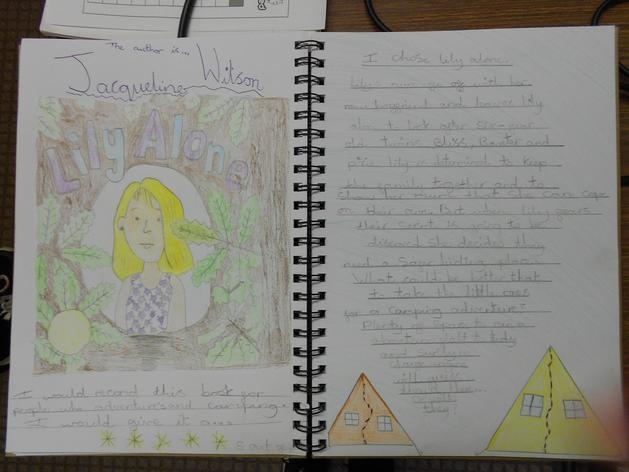 The author is...
Jacqueline Wilson
Lily Alone
I would recond this book for
people who adventures and camping.
I would give it a...
5 out of
I chose lily alone.
Lily's mum go off with her
new boyfriend and leaves lily
alone to look after six-year
old twins Bliss, Baxter and
pixie. lily is determined to keep
the family together and to
show her mum that she can cope
on their own. But when lily fears
their secret is going to be
discoverd she decides they
need a safe hiding place.
What could be better that
to take the little ones
for a camping adventure?
Plenty of space to run
about
will
they?